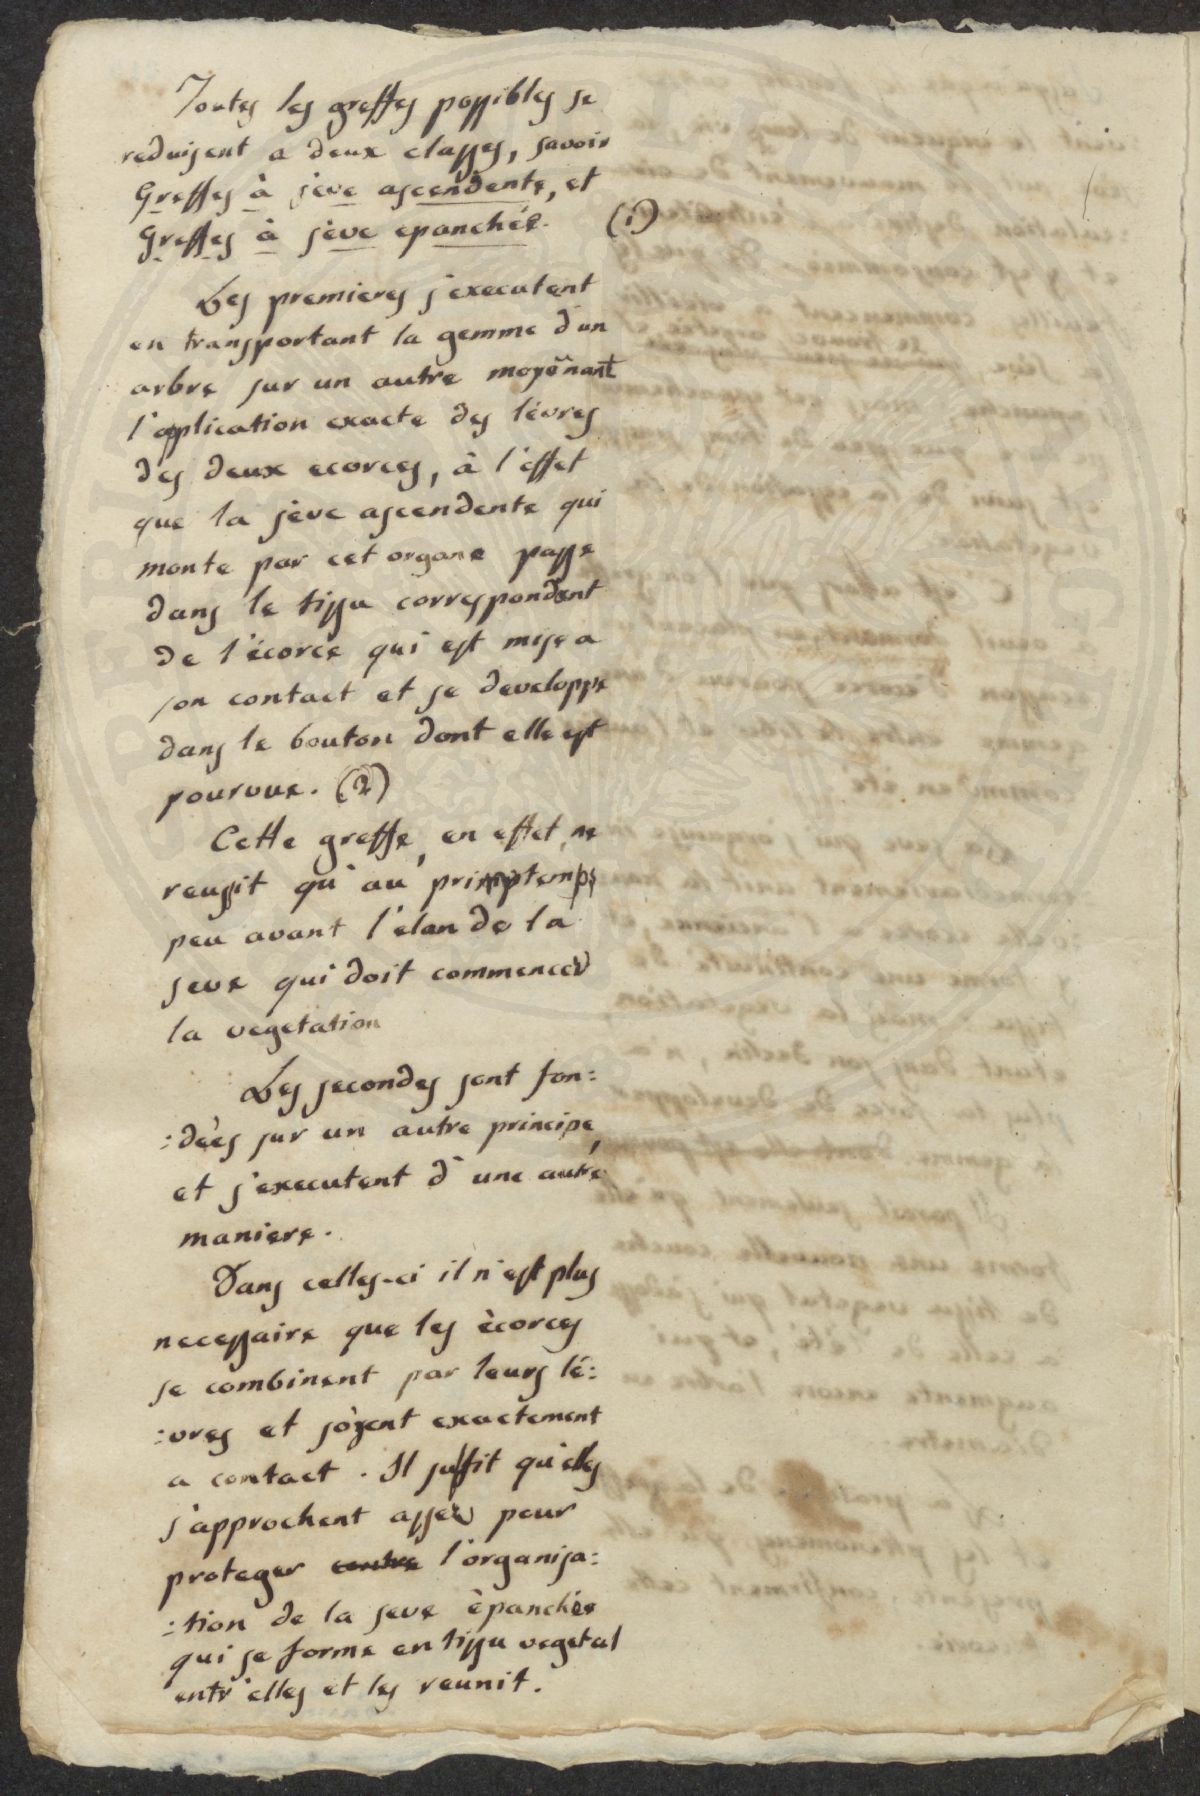 Toutes les greffes possibles se
reduisent a deux classes, savoir
Greffes à sève ascendente, et
Greffes à sève epanchée. (1)
Les premieres s'executent
en transportant la gemme d'un
arbre sur un autre moyënant
l'aplication exacte des lévres
des deux ecorces, à l'effet
que la sève ascendente qui
monte par cet organe passe
dans le tissu correspondent
de l'écorce qui est mise a
son contact et se developpe
dans le bouton dont elle est
pourvue. (2)
Cette greffe, en effet, ne
reussit qu'au primptemps
peu avant l'elan de la
seve qui doit commencer
la vegetation
Les secondes sont fon:
:dèes sur un autre principe,
et s'executent d'une autre
maniere.
Dans celles-ci il n'est plus
necessaire que les ècorces
se combinent par leurs lé:
:vres et soÿent exactement
a contact. Il suffit qu'elles
s'approchent assez pour
proteger contre l'organisa:
:tion de la seve èpanchée
qui se forme en tissu vegetal
entr'elles et les reunit.